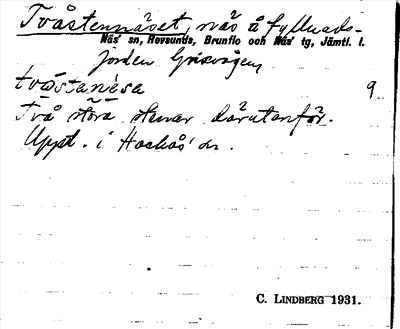 Tvåstennäset, näs å fyllnads-
Näs' sn, Revsunds, Brunflo och Näs' tg, Jämtl. l.
jorden Grisvågen,
tvåstanésa 9
Två stora stenar därutanför.
Uppt. i Hackås' sn.
C. LINDBERG 1931.